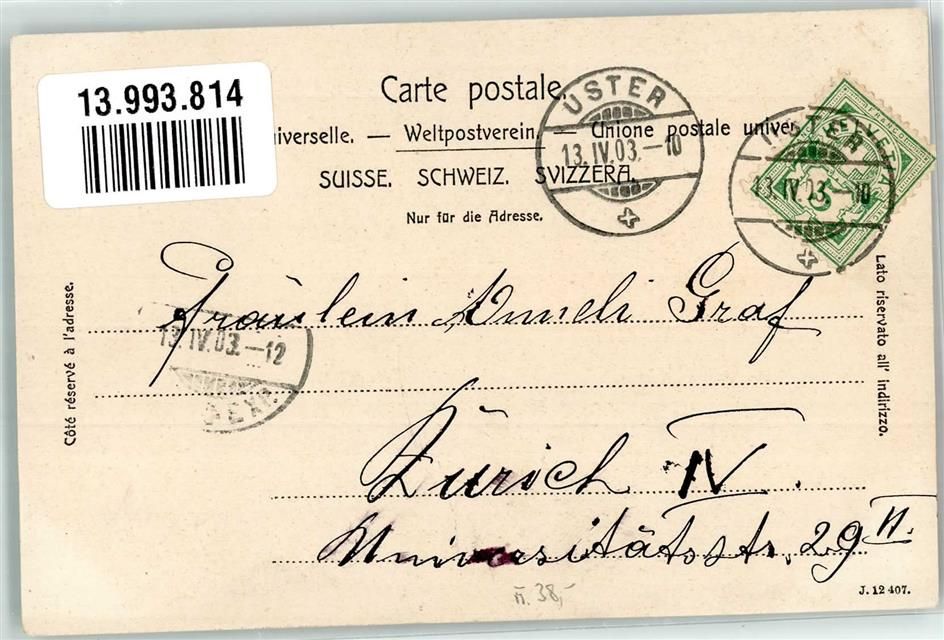 13.993.814
Carte postale.
iverselle. — Weltpostverein. — Unione postale univer
SUISSE. SCHWEIZ. SVIZZERA.
Nur für die Adresse.
USTER
13.IV.03.-10
USTER
13.IV.03.-10
HELVETIA
FRANCO
5
Côté réservé à l'adresse.
Lato riservato all' indirizzo.
Fräulein Anneli Graf
13.IV.03.-12
EXP.
Zürich IV.
Universitätsstr. 29 II.
n. 38,-
J. 12 407.